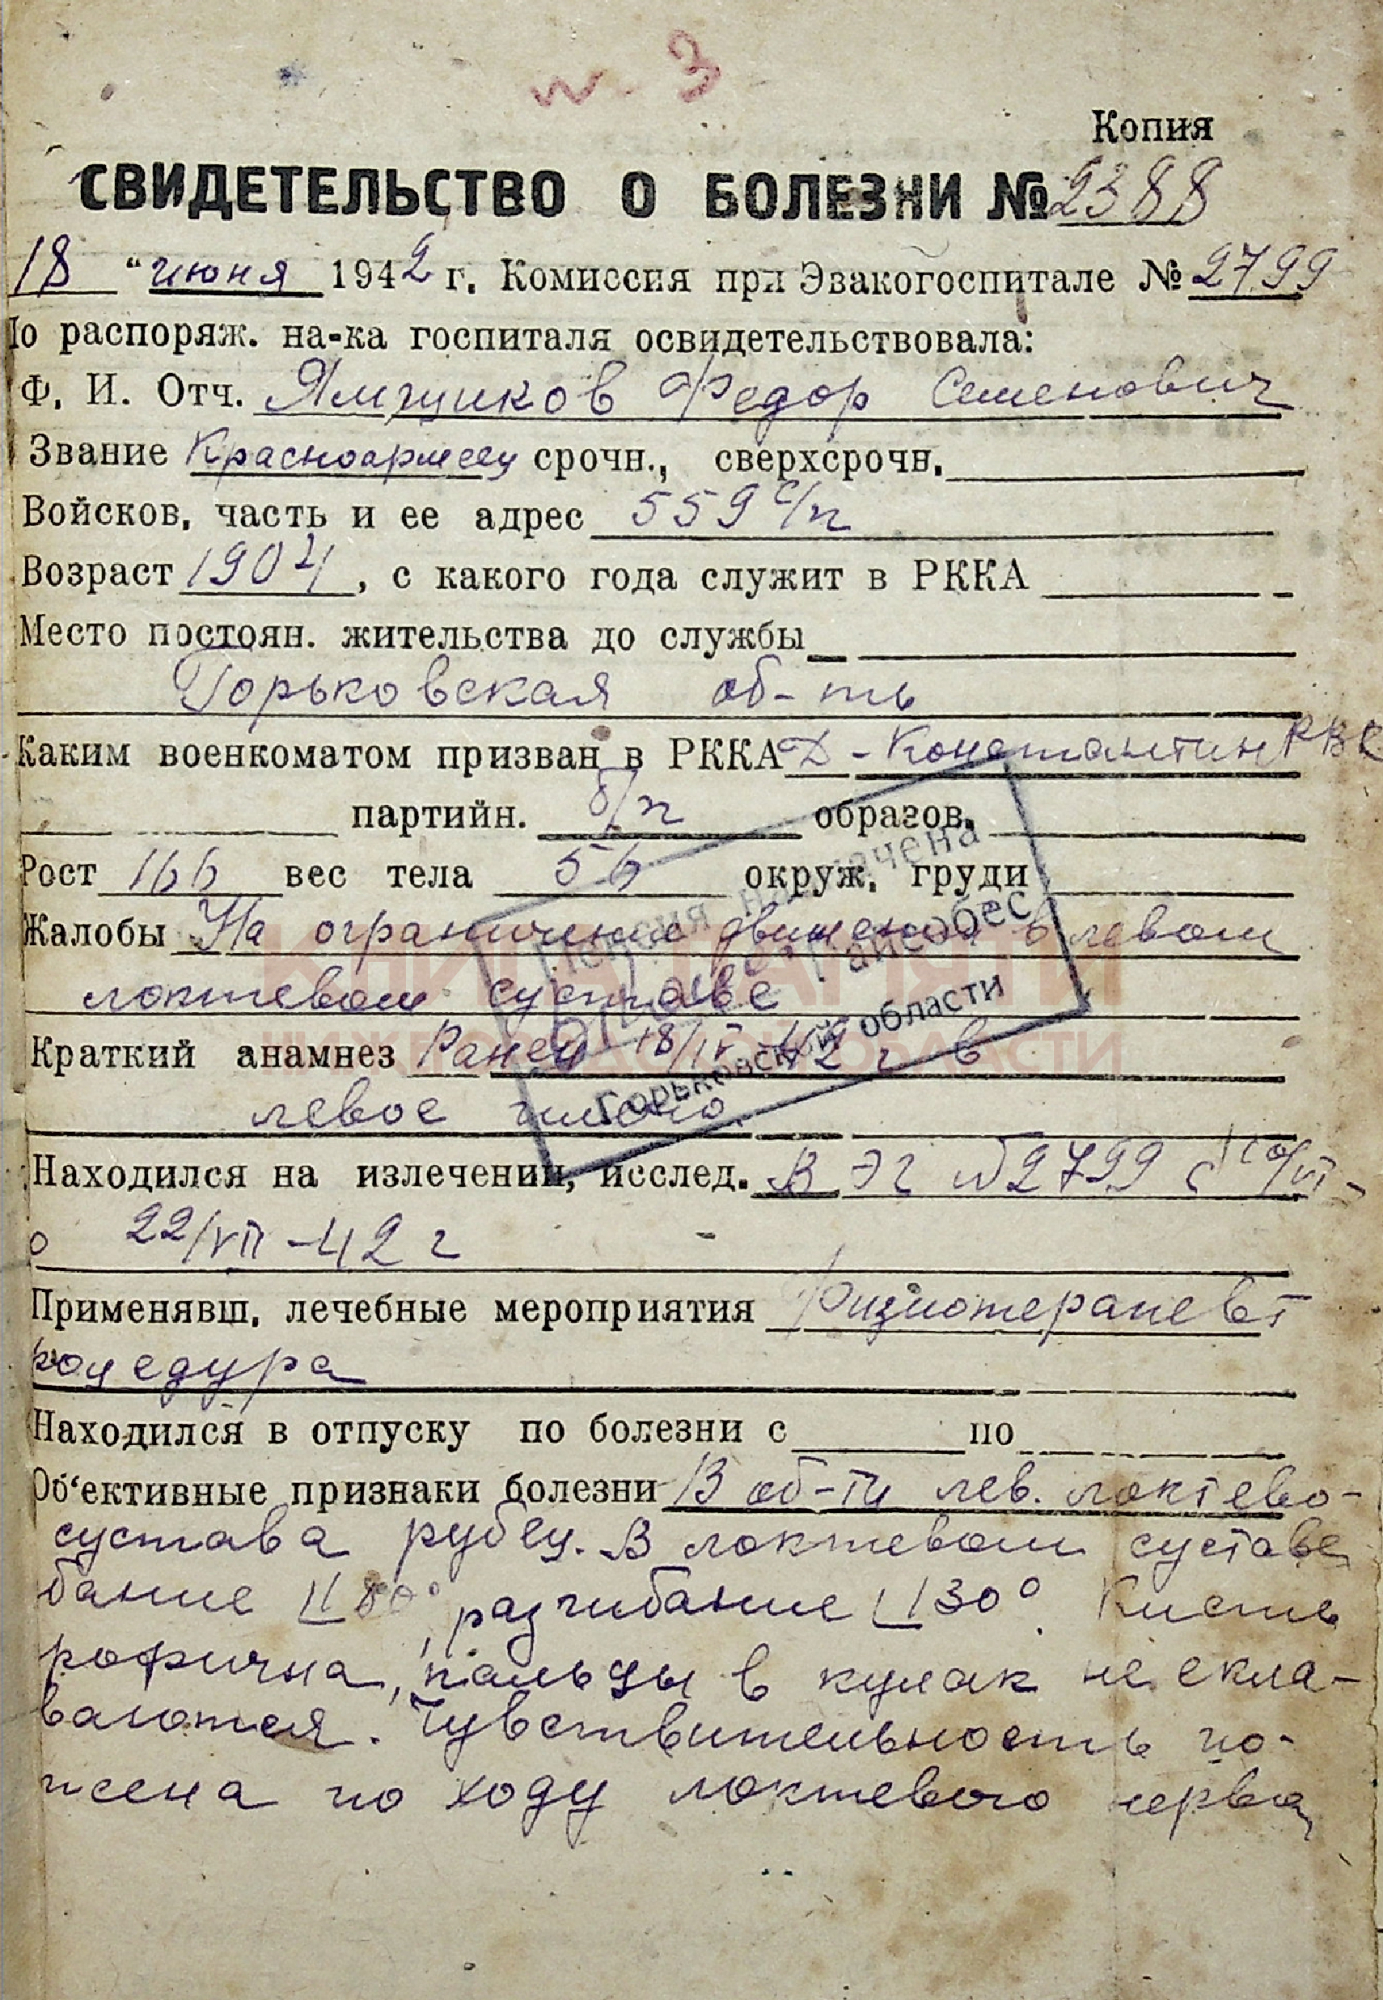 N. 3
Копия
СВИДЕТЕЛЬСТВО О БОЛЕЗНИ № 2388
18 " июня 1942 г. Комиссия при Эвакогоспитале № 2799
По распоряж. на-ка госпиталя освидетельствовала:
Ф. И. Отч. Федор Семенович
Звание Красноармеец срочн., сверхсрочн.
Войсков. часть и ее адрес 559 с/п
Возраст 1904, с какого года служит в РККА
Место постоян. жительства до службы
Горьковская об-ть
Каким военкоматом призван в РККА Д-Константин РВК
партийн. б/п образов.
Рост 166 вес тела 56 окруж. груди
Жалобы На ограничение движения в левом
локтевом суставе
Краткий анамнез Ранен 18/IV-42 г в
левое
Находился на излечении, исслед. В ЭГ №2799 с
о 22/VII-42 г
Применявш. лечебные мероприятия физиотерапевт
роцедура
Находился в отпуску по болезни с по
Об'ективные признаки болезни В об-ти лев. локтево-
сустава рубец. В локтевом суставе
бание 80°, разгибание 130°. Кисть
рофична, пальцы в кулак не скла-
ваются. Чувствительность по-
жена по ходу локтевого нерва
Пенсия назначена
Райсобес
Горьковской области
КНИГА ПАМЯТИ
НИЖЕГОРОДСКОЙ ОБЛАСТИ